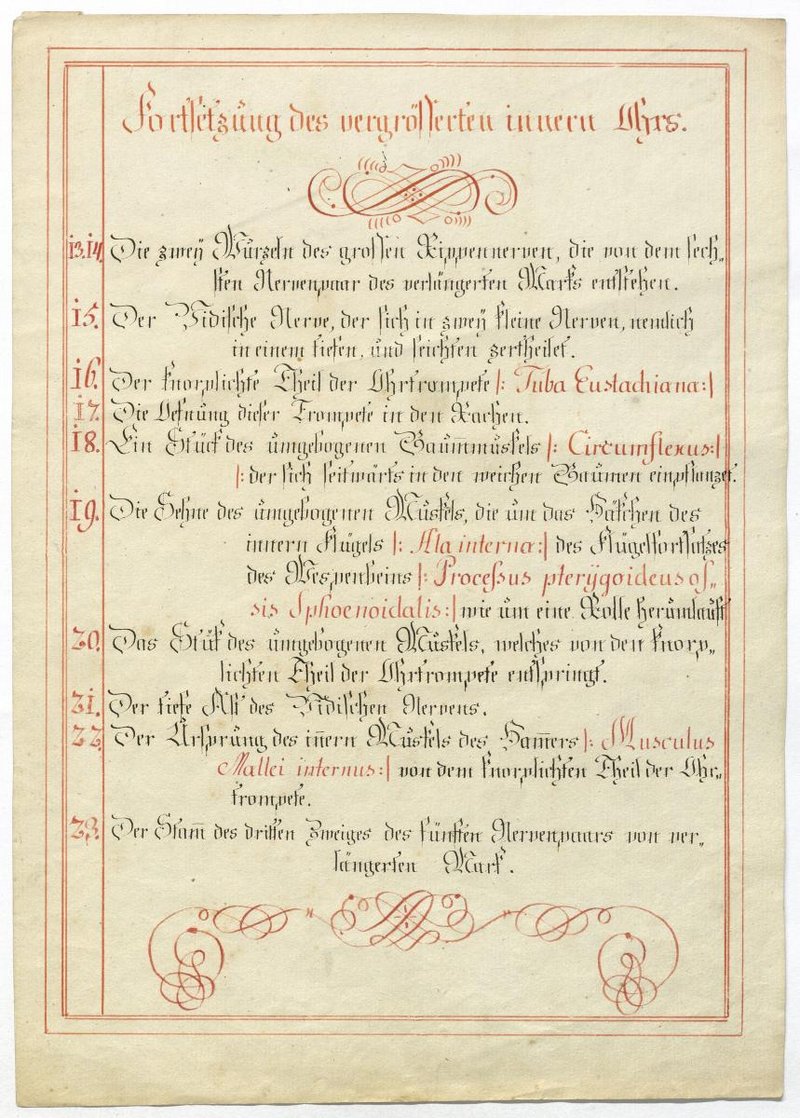 Fortsetzung des vergrösserten innern Ohrs.
13.14. Die zweÿ Wurzeln des grossen Rippennerven, die von dem sech„
sten Nervenpaar des verlängerten Marks entstehen.
15. Der Vidische Nerve, der sich in zweÿ kleine Nerven, nemlich
in einem tiefen, und seichten zertheilet.
16. Der knorplichte Theil der Ohrtrompete |: Tuba Eustachiana :|
17. Die Oefnung dieser Trompete in den Rachen.
18. Ein Stück des umgebogenen Gaum̅muskels |: Circumflexus :|
|: der sich seitwärts in den weichen Gaumen einpflanzet.
19. Die Sehne des umgebogenen Muskels, die um das Häkchen des
innern Flügels |: Ala interna :| des Flügelfortsatzes
des Wespenbeins |: Processus pterÿgoideus os„
sis Sphoenoidalis :| wie um eine Rolle herumlauft
20. Das Stük des umgebogenen Muskels, welches von den knorp„
lichten Theil der Ohrtrompete entspringt.
21. Der tiefe Ast des Vidischen Nervens.
22. Der Ursprung des in̅ern Muskels des Ham̅ers |: Musculus
Mallei internus :| von dem knorplichten Theil der Ohr„
trompete.
23. Der Stam̅ des dritten Zweiges des fünften Nervenpaars von ver„
längerten Mark.